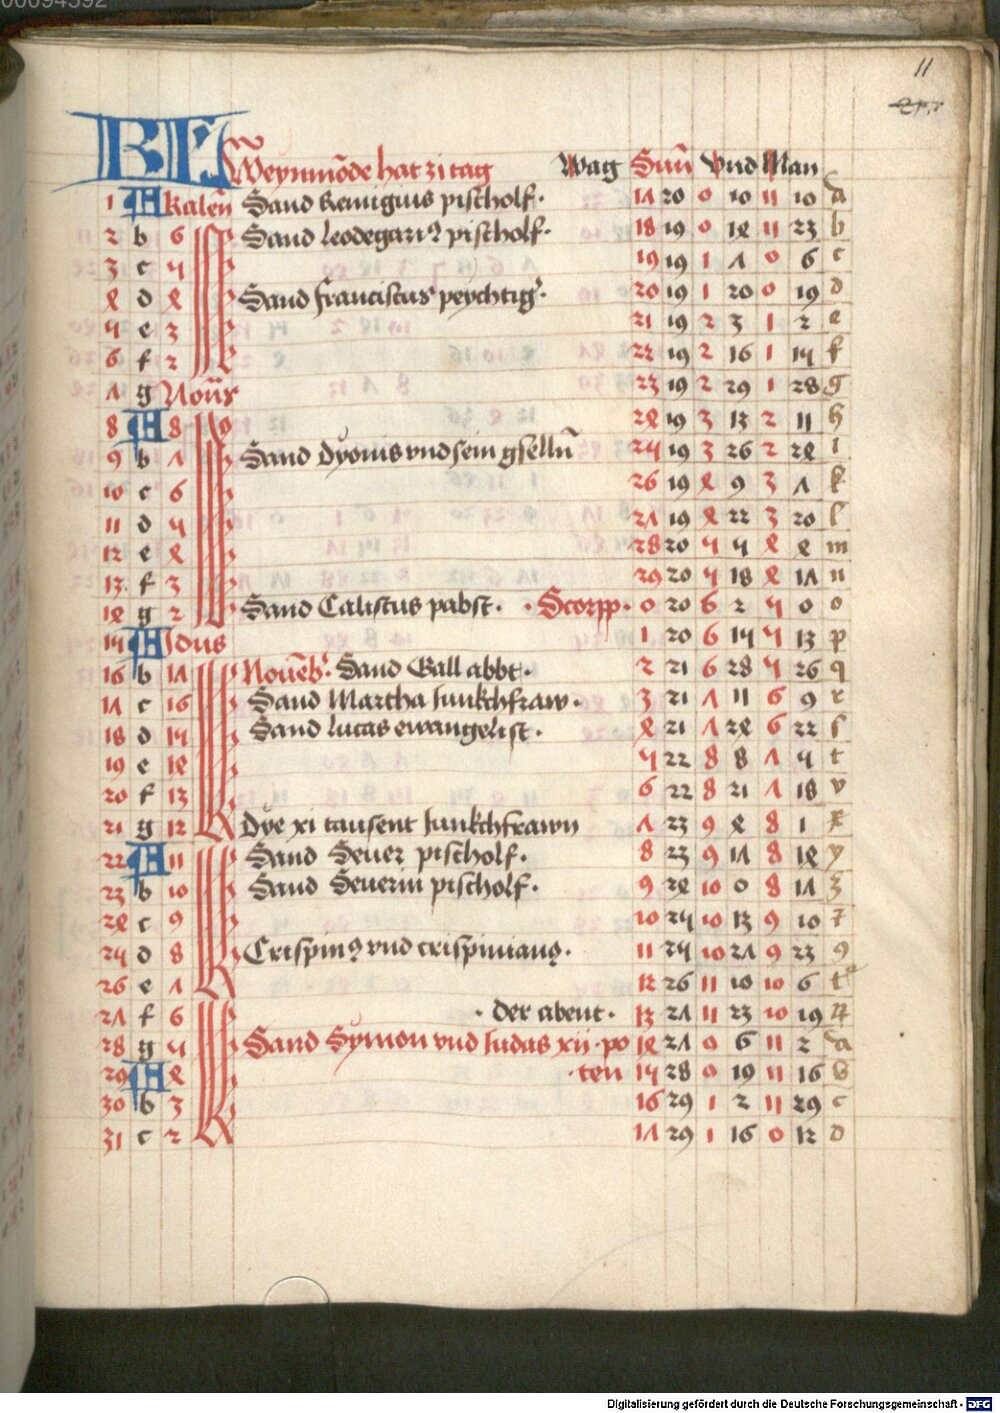 00094592
11
KL Weynmode hat 31 tag Wag Sun vnd Man
1 A kalen Sand Remigius pischolf. 17 20 0 10 11 10 a
2 b 6 Sand leodegari9 pischolf. 18 19 0 14 11 23 b
3 c 5 19 19 1 7 0 6 c
4 d 4 Sand franciscus peychtig. 20 19 1 20 0 19 d
5 e 3 21 19 2 3 1 2 e
6 f 2 22 19 2 16 1 15 f
7 g Nonis 23 19 2 29 1 28 g
8 A 8 24 19 3 13 2 11 h
9 b 7 Sand dyonis vnd sein gselln 25 19 3 26 2 24 i
10 c 6 26 19 4 9 3 7 k
11 d 5 27 19 4 22 3 20 l
12 e 4 28 20 5 5 4 4 m
13 f 3 29 20 5 18 4 17 n
14 g 2 Sand Calistus pabst. Scorpp. 0 20 6 2 5 0 o
15 A Idus 1 20 6 15 5 13 p
16 b 17 Noueb. Sand Gall abbt. 2 21 6 28 5 26 q
17 c 16 Sand Martha Junkchfraw. 3 21 7 11 6 9 r
18 d 15 Sand lucas ewangelist. 4 21 7 24 6 22 s
19 e 14 5 22 8 8 7 5 t
20 f 13 6 22 8 21 7 18 v
21 g 12 Dye xi tausent Junkchfrawn 7 23 9 4 8 1 x
22 A 11 Sand Seuer pischolf. 8 23 9 17 8 14 y
23 b 10 Sand Seuerin pischolf. 9 24 10 0 8 17 z
24 c 9 10 25 10 13 9 10 7
25 d 8 Crispin9 vnd crispinian9. 11 25 10 27 9 23 9
26 e 7 12 26 11 10 10 6 t
27 f 6 der abent. 13 27 11 23 10 19
28 g 5 Sand Symon vnd Judas xii po 14 27 0 6 11 2 a
29 A 4 ten 15 28 0 19 11 16 b
30 b 3 16 29 1 2 11 29 c
31 c 2 17 29 1 16 0 12 d
Digitalisierung gefördert durch die Deutsche Forschungsgemeinschaft - DFG